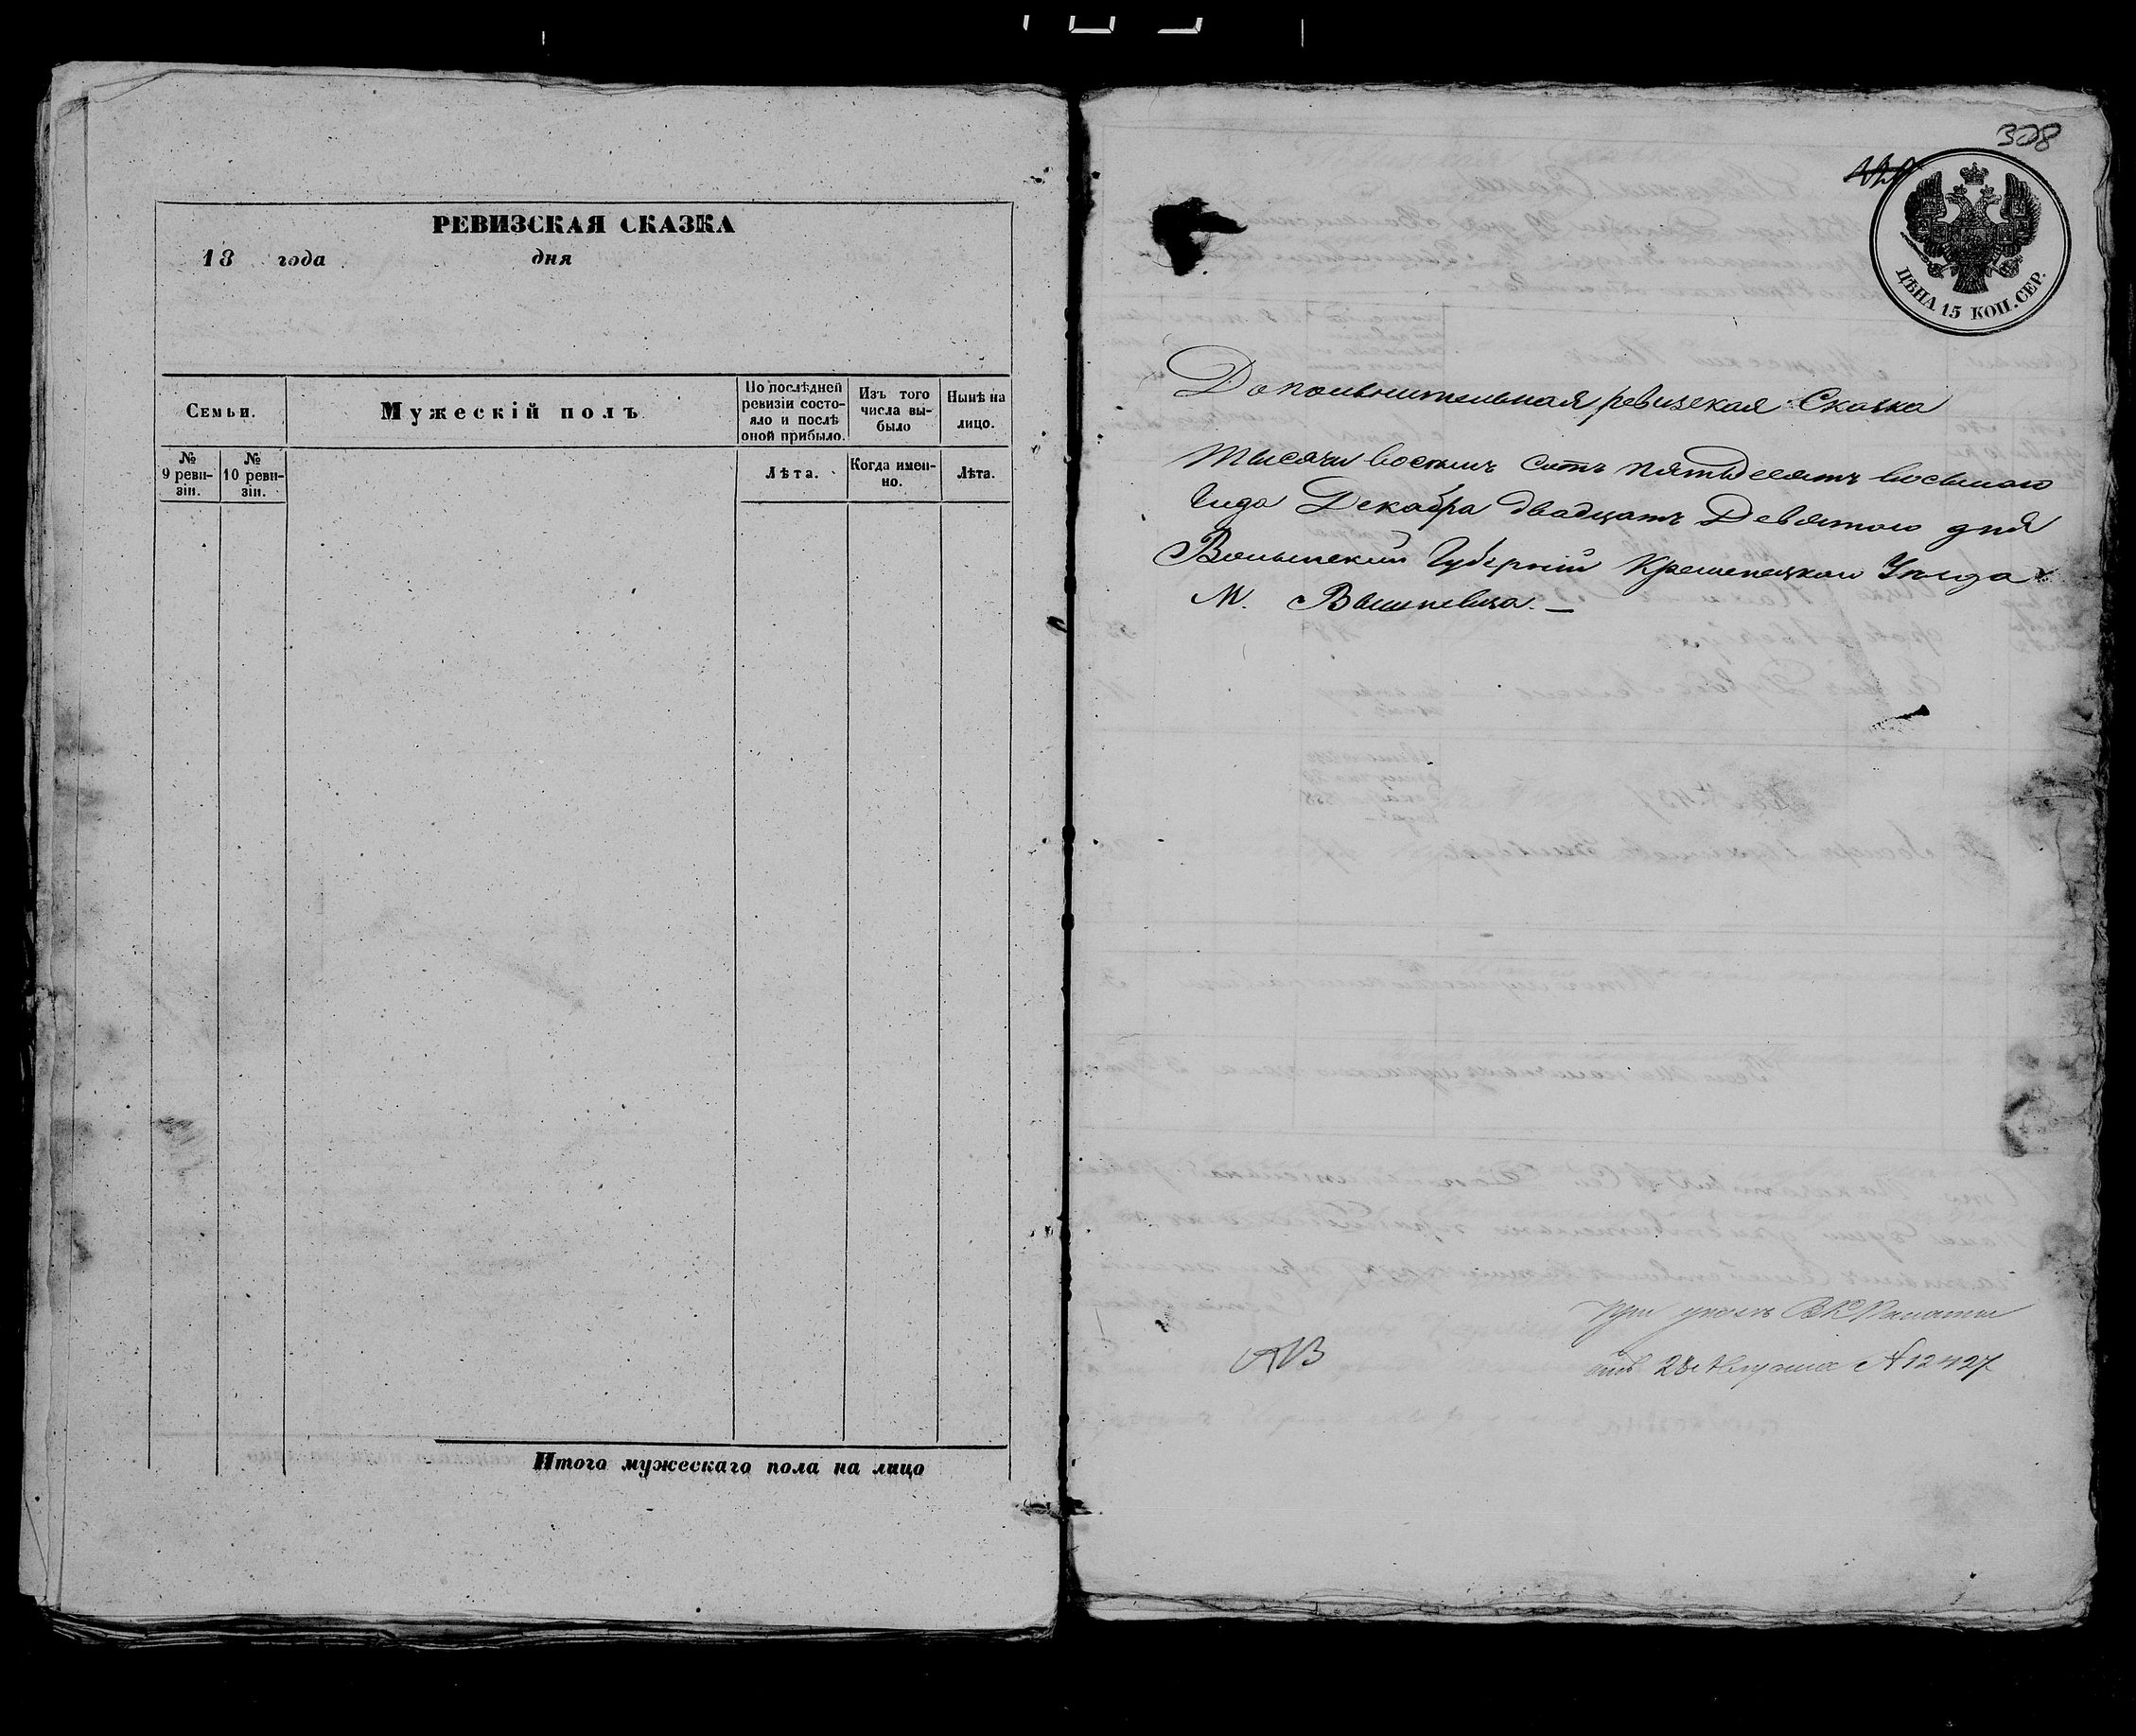 РЕВИЗСКАЯ СКАЗКА
18 года дня
Семьи.
Мужескій полъ
По послѣдней ревизіи состо-
яло и послѣ
оной прибыло.
Изъ того
числа вы-
было
Нынѣ на
лицо.
№
9 реви-
зіи.
№
10 реви-
зіи.
Лѣта.
Когда имен-
но.
Лѣта.
Итого мужескаго пола на лицо
328
ЦѢНА 15 КОП. СЕР.
Дополнительная ревизская Сказка
тысячи восемь сотъ пятьдесятъ восьмаго
года Декабря двадцать Девятого дня
Волынской Губерніи Кременецкаго Уѣзда
М. Вишневца. —
При указѣ ВКПалаты
отъ 28 Августа № 12427
АВ